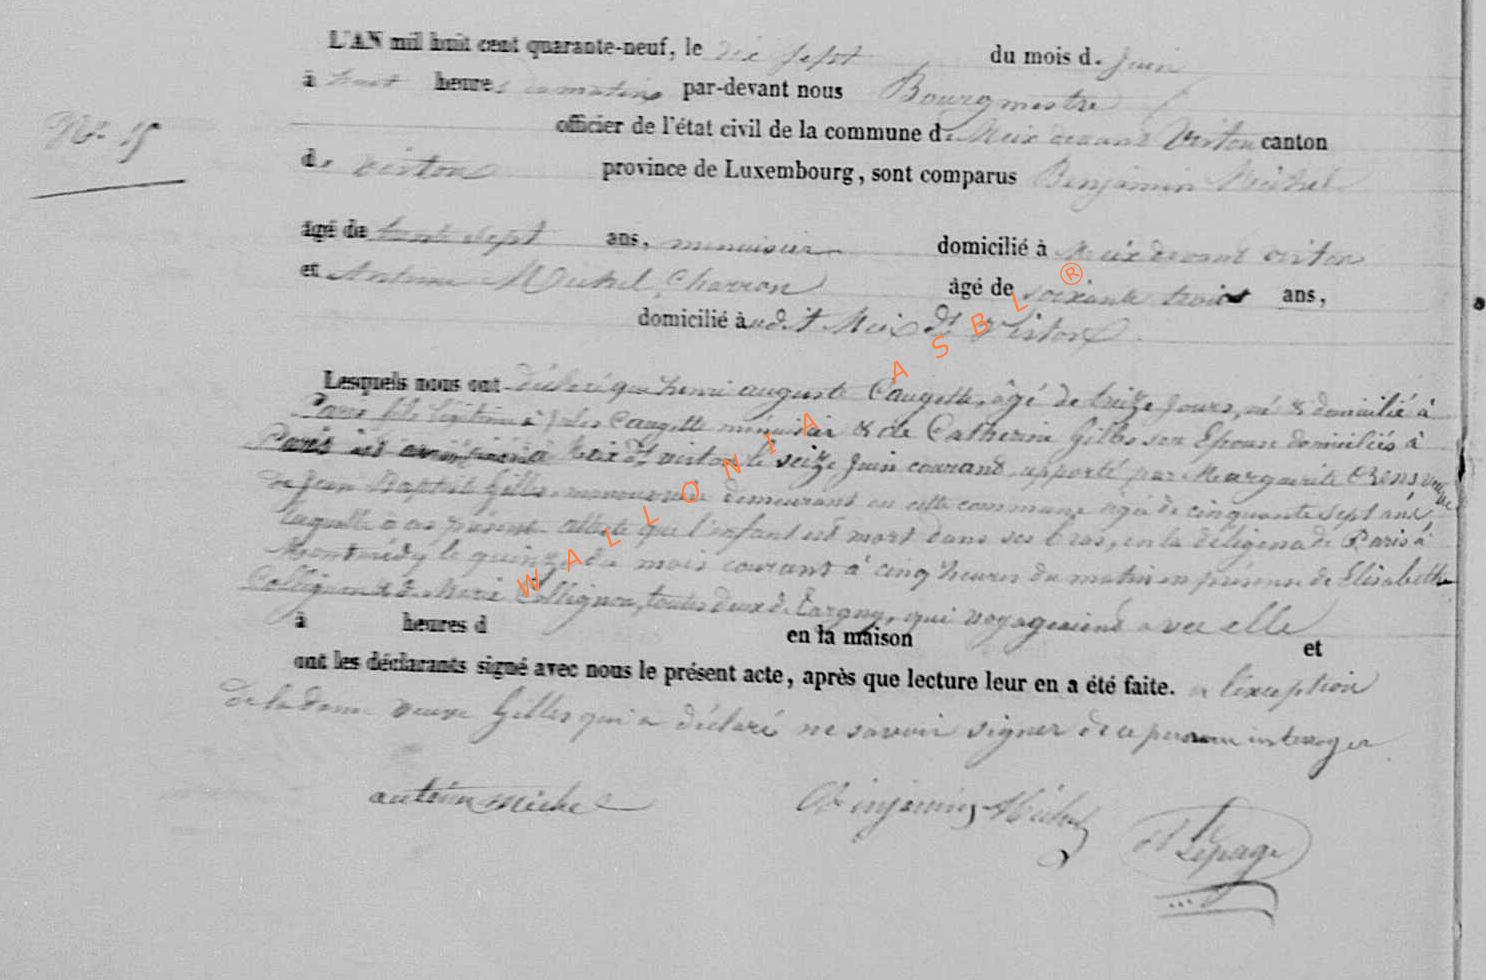 L'AN mil huit cent quarante-neuf, le dix sept du mois de Juin
à huit heures du matin par-devant nous Bourgmestre
officier de l'état civil de la commune de Meix devant Virton canton
N°
de Virton province de Luxembourg, sont comparus Benjamin Michel
âgé de trente sept ans, menuisier domicilié à Meix devant Virton
et Antoine Michel, Charron âgé de soixante trois ans,
domicilié audit Meix dt Virton
Lesquels nous ont déclaré que henri auguste Caugette, âgé de treize Jours, né & domicilié à
Paris fils légitime à Jules Caugette menuisier & de Catherine Gilles son Epouse domiciliés à
Paris est à Meix dt virton le seize Juin courant apporté par Marguerite veuve
de Jean Baptiste Gilles, demeurant en cette commune âgée de cinquante sept ans,
laquelle à ce présente atteste que l'enfant est mort dans ses bras, en la diligence de Paris à
Montmédy le quinze du mois courant à cinq heures du matin en présence de Elisabeth
Collignon & de Marie Collignon, toutes deux de Torgny, qui voyageaient avec elle
à heures d en la maison et
ont les déclarants signé avec nous le présent acte, après que lecture leur en a été faite. a l'exception
de la dame veuve Gilles qui a déclaré ne savoir signer de ce interoger
antoine Michel Benjamin Michel Lepage
WALLONIA ASBL ®